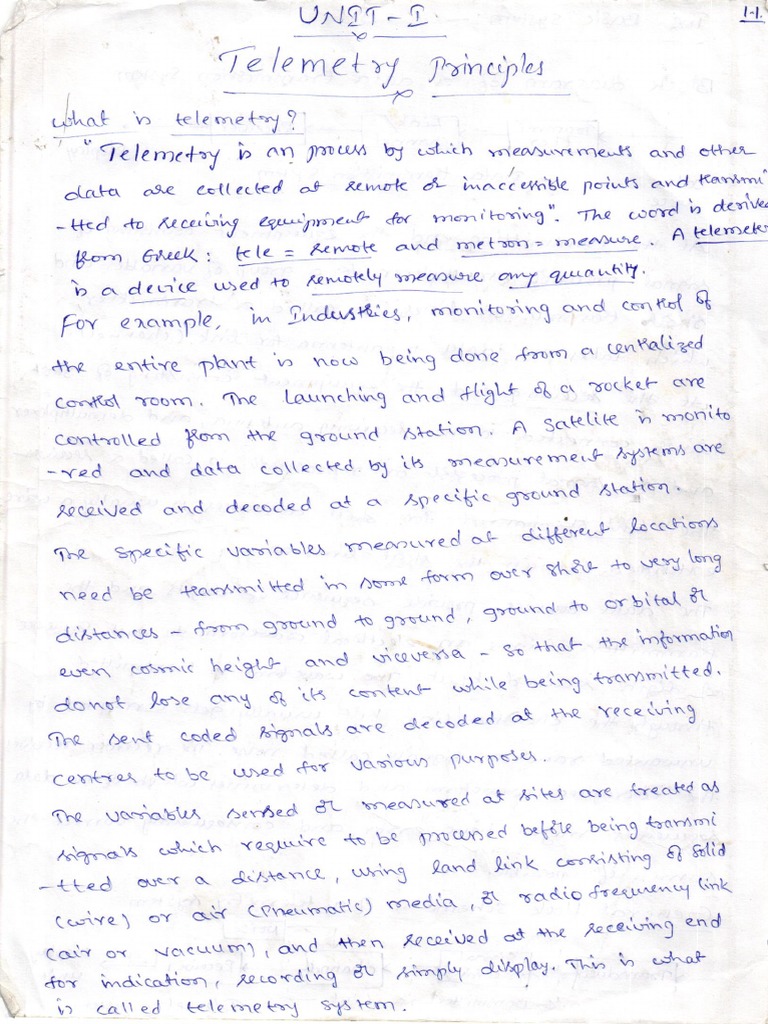 UNIT-I
1-1.
Telemetry Principles
what is telemetry?
"Telemetry is an process by which measurements and other
data are collected at remote or inaccessible points and transmi
-tted to receiving equipment for monitoring". The word is derive
from Greek: tele = remote and metron = measure. A telemeter
is a device used to remotely measure any quantity.
For example, in Industries, monitoring and control of
the entire plant is now being done from a centralized
control room. The launching and flight of a rocket are
controlled from the ground station. A satelite is monito
-red and data collected by its measurement systems are
received and decoded at a specific ground station.
The specific variables measured at different locations
need be transmitted in some form over short to very long
distances - from ground to ground, ground to orbital or
even cosmic height and viceversa - so that the information
donot lose any of its content while being transmitted.
The sent coded signals are decoded at the receiving
centres to be used for various purposes.
The variables sensed or measured at sites are treated as
signals which require to be processed before being transmi
-tted over a distance, using land link consisting of solid
(wire) or air (pneumatic) media, or radio frequency link
(air or vacuum), and then received at the receiving end
for indication, recording or simply display. This is what
is called telemetry system.